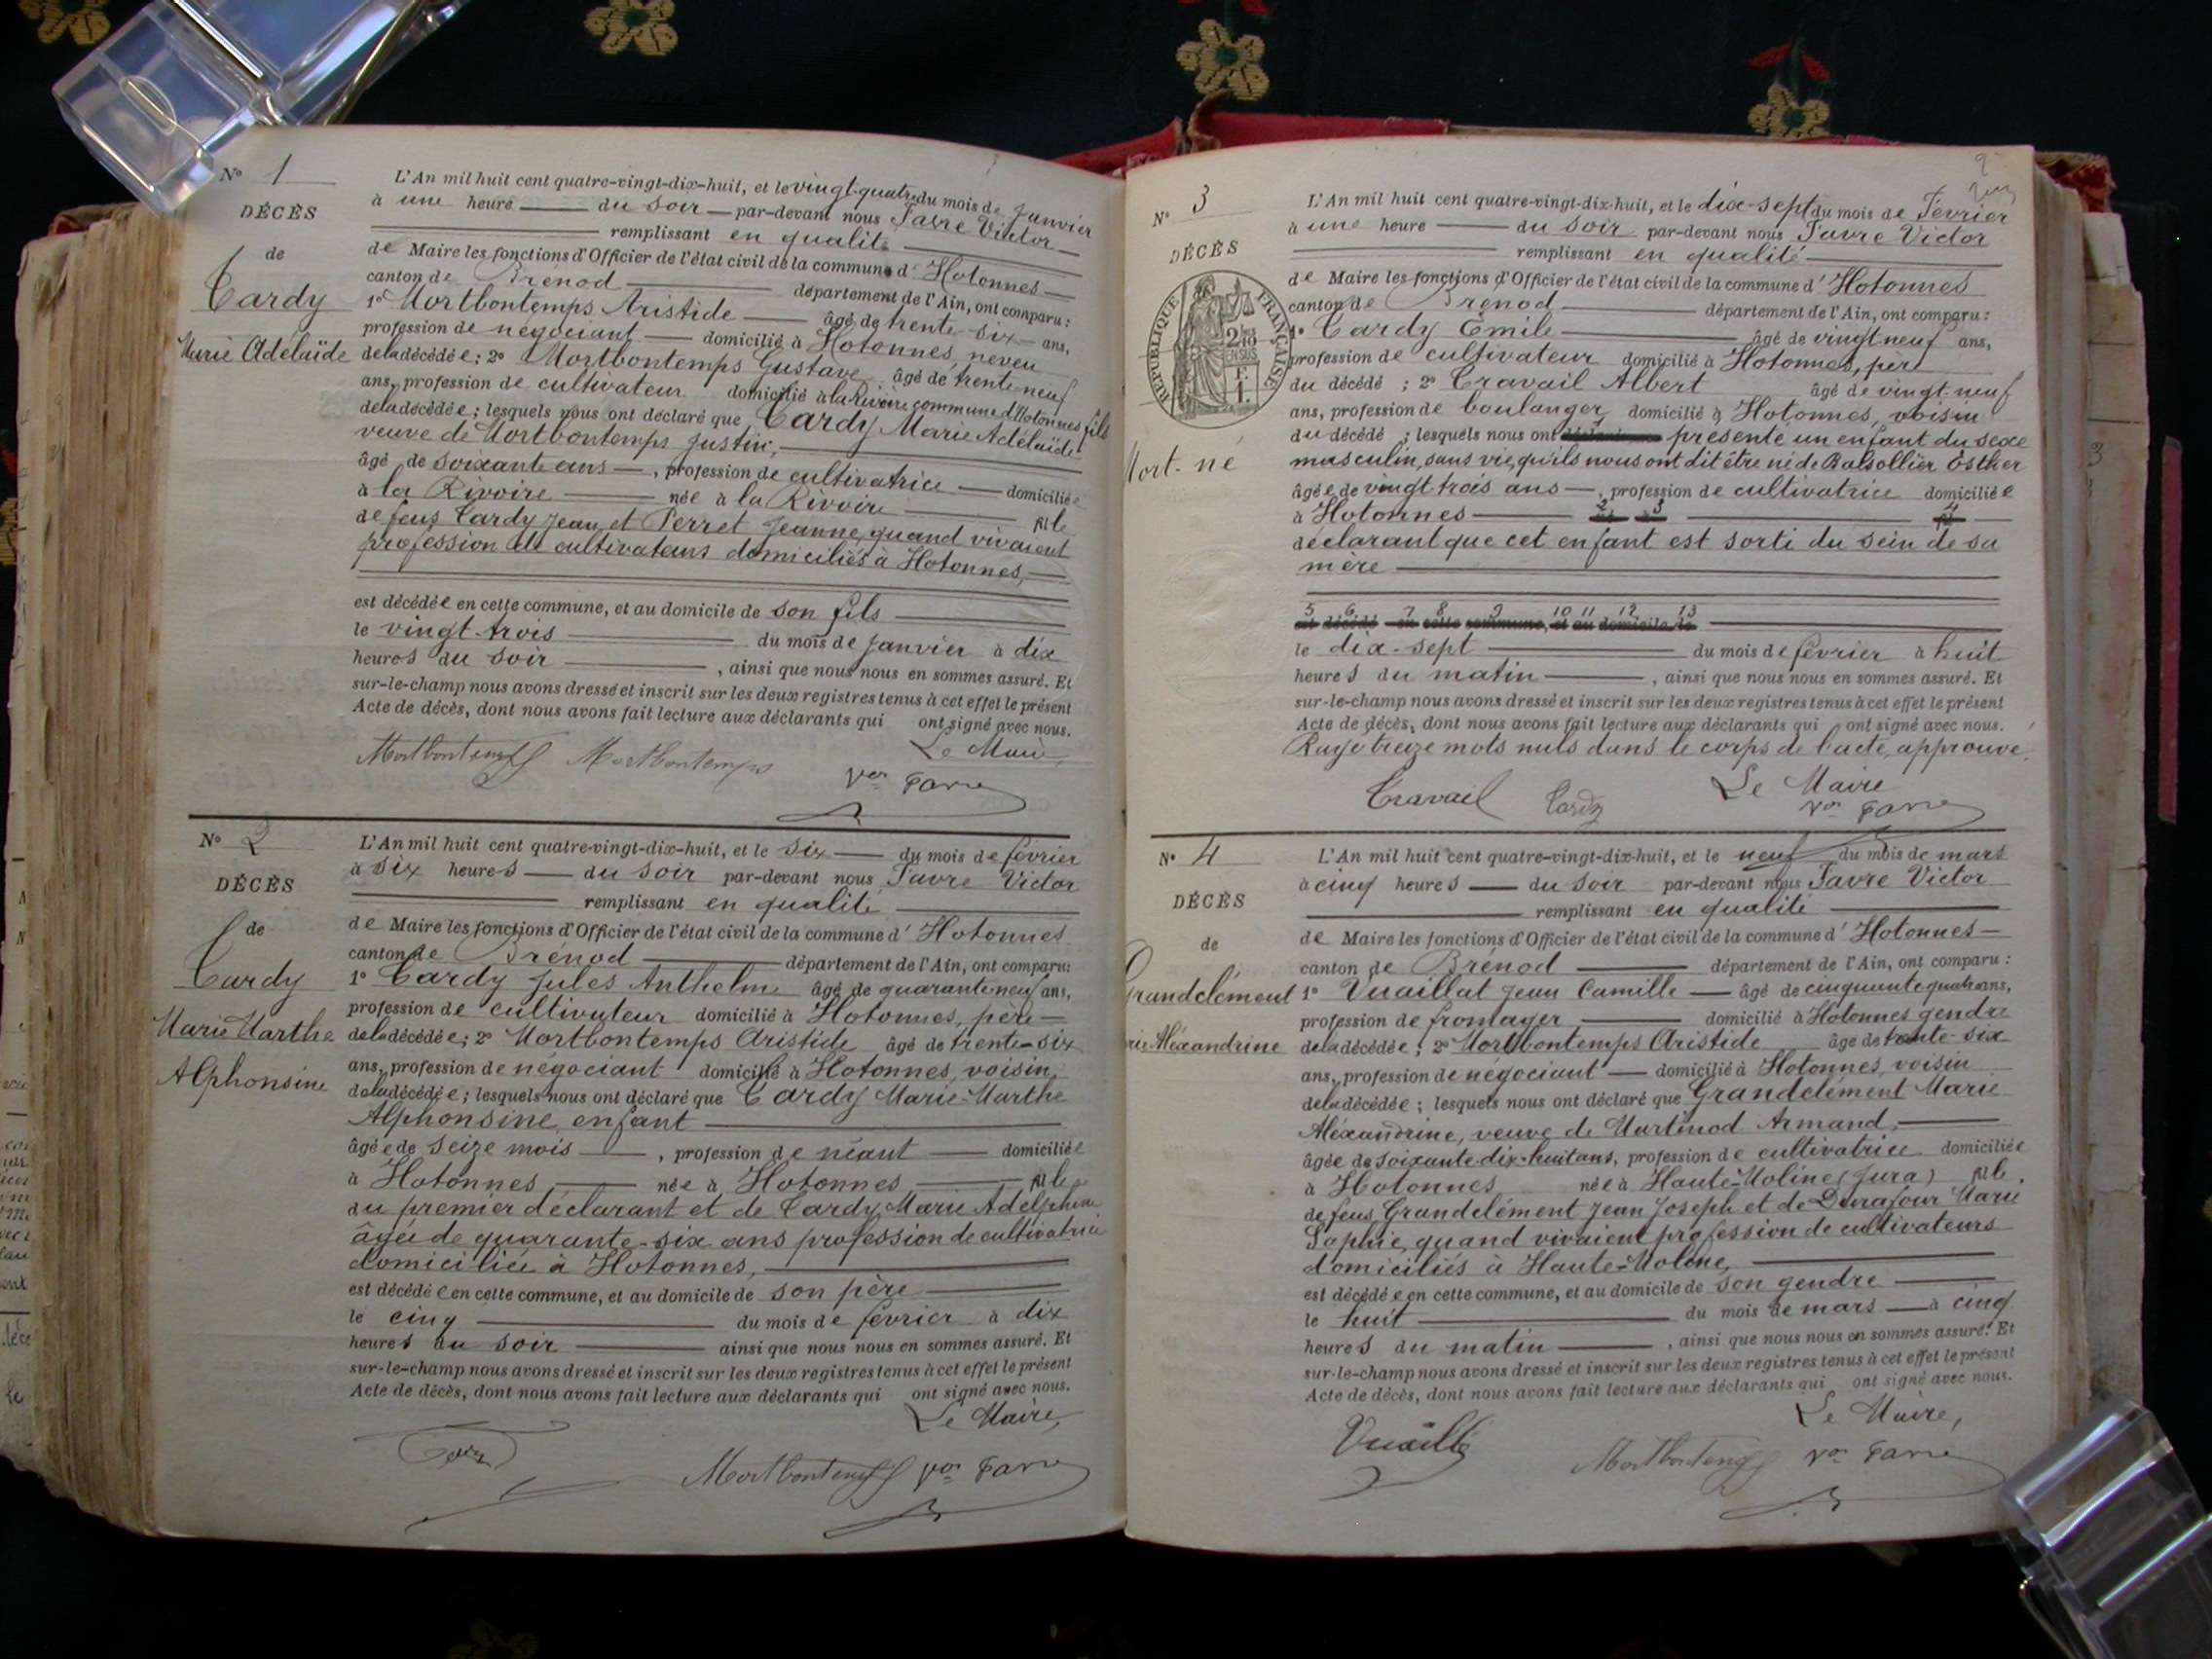 N° 1
DÉCÈS
de
Cardy
Marie Adélaïde
L'An mil huit cent quatre-vingt-dix-huit, et le vingt-quatre du mois de Janvier
à une heure du soir par-devant nous Favre Victor
remplissant en qualité
de Maire les fonctions d'Officier de l'état civil de la commune d'Hotonnes
canton de Brénod département de l'Ain, ont comparu :
1° Mortbontemps Aristide âgé de trente-six ans,
profession de négociant domicilié à Hotonnes, neveu
de la décédée ; 2° Mortbontemps Gustave âgé de trente neuf
ans, profession de cultivateur domicilié à la Rivoire commune d'Hotonnes fils
de la décédée ; lesquels nous ont déclaré que Cardy Marie Adélaïde
veuve de Mortbontemps Justin,
âgé de soixante ans, profession de cultivatrice domiciliée
à la Rivoire née à la Rivoire fille
de feus Cardy Jean et Perret Jeanne, quand vivaient
profession de cultivateurs domiciliés à Hotonnes,
est décédée en cette commune, et au domicile de son fils
le vingt-trois du mois de janvier à dix
heures du soir, ainsi que nous nous en sommes assuré. Et
sur-le-champ nous avons dressé et inscrit sur les deux registres tenus à cet effet le présent
Acte de décès, dont nous avons fait lecture aux déclarants qui ont signé avec nous.
Le Maire,
Mortbontemps Mortbontemps Vor Favre
N° 2
DÉCÈS
de
Cardy
Marie Marthe
Alphonsine
L'An mil huit cent quatre-vingt-dix-huit, et le six du mois de février
à six heures du soir par-devant nous Favre Victor
remplissant en qualité
de Maire les fonctions d'Officier de l'état civil de la commune d'Hotonnes
canton de Brénod département de l'Ain, ont comparu :
1° Cardy Jules Anthelme âgé de quarante neuf ans,
profession de cultivateur domicilié à Hotonnes, père
de la décédée ; 2° Mortbontemps Aristide âgé de trente-six
ans, profession de négociant domicilié à Hotonnes, voisin
de la décédée ; lesquels nous ont déclaré que Cardy Marie-Marthe
Alphonsine, enfant
âgée de seize mois, profession de néant domiciliée
à Hotonnes née à Hotonnes fille
du premier déclarant et de Cardy Marie Adelphine
âgée de quarante-six ans profession de cultivatrice
domiciliée à Hotonnes,
est décédée en cette commune, et au domicile de son père
le cinq du mois de février à dix
heures du soir ainsi que nous nous en sommes assuré. Et
sur-le-champ nous avons dressé et inscrit sur les deux registres tenus à cet effet le présent
Acte de décès, dont nous avons fait lecture aux déclarants qui ont signé avec nous.
Le Maire,
Mortbontemps Vor Favre
2
N° 3
DÉCÈS
RÉPUBLIQUE FRANÇAISE
Mort-né
L'An mil huit cent quatre-vingt-dix-huit, et le dix-sept du mois de Février
à une heure du soir par-devant nous Favre Victor
remplissant en qualité
de Maire les fonctions d'Officier de l'état civil de la commune d'Hotonnes
canton de Brénod département de l'Ain, ont comparu :
1° Cardy Émile âgé de vingt-neuf ans,
profession de cultivateur domicilié à Hotonnes, père
du décédé ; 2° Travail Albert âgé de vingt-neuf
ans, profession de boulanger domicilié à Hotonnes, voisin
du décédé ; lesquels nous ont présenté un enfant du sexe
masculin, sans vie, qu'ils nous ont dit être né de Balsollier Esther
âgée de vingt trois ans, profession de cultivatrice domiciliée
à Hotonnes 2 3 4
déclarant que cet enfant est sorti du sein de sa
mère
5 6 7 8 9 10 11 12 13
est décédé en cette commune, et au domicile de
le dix-sept du mois de février à huit
heures du matin, ainsi que nous nous en sommes assuré. Et
sur-le-champ nous avons dressé et inscrit sur les deux registres tenus à cet effet le présent
Acte de décès, dont nous avons fait lecture aux déclarants qui ont signé avec nous.
Rayé treize mots nuls dans le corps de l'acte, approuvé.
Travail Cardy Le Maire
Vor Favre
N° 4
DÉCÈS
de
Grandclément
Aléxandrine
L'An mil huit cent quatre-vingt-dix-huit, et le neuf du mois de mars
à cinq heures du soir par-devant nous Favre Victor
remplissant en qualité
de Maire les fonctions d'Officier de l'état civil de la commune d'Hotonnes
canton de Brénod département de l'Ain, ont comparu :
1° Vuaillat Jean Camille âgé de cinquante quatre ans,
profession de fromager domicilié à Hotonnes gendre
de la décédée ; 2° Mortbontemps Aristide âgé de trente-six
ans, profession de négociant domicilié à Hotonnes, voisin
de la décédée ; lesquels nous ont déclaré que Grandclément Marie
Aléxandrine, veuve de Martinod Armand,
âgée de soixante-dix-huit ans, profession de cultivatrice domiciliée
à Hotonnes née à Haute-Moline (Jura) fille
de feus Grandclément Jean Joseph et de Durafour Marie
Sophie, quand vivaient profession de cultivateurs
domiciliés à Haute-Molone,
est décédée en cette commune, et au domicile de son gendre
le huit du mois de mars à cinq
heures du matin, ainsi que nous nous en sommes assuré. Et
sur-le-champ nous avons dressé et inscrit sur les deux registres tenus à cet effet le présent
Acte de décès, dont nous avons fait lecture aux déclarants qui ont signé avec nous.
Le Maire,
Mortbontemps Vor Favre